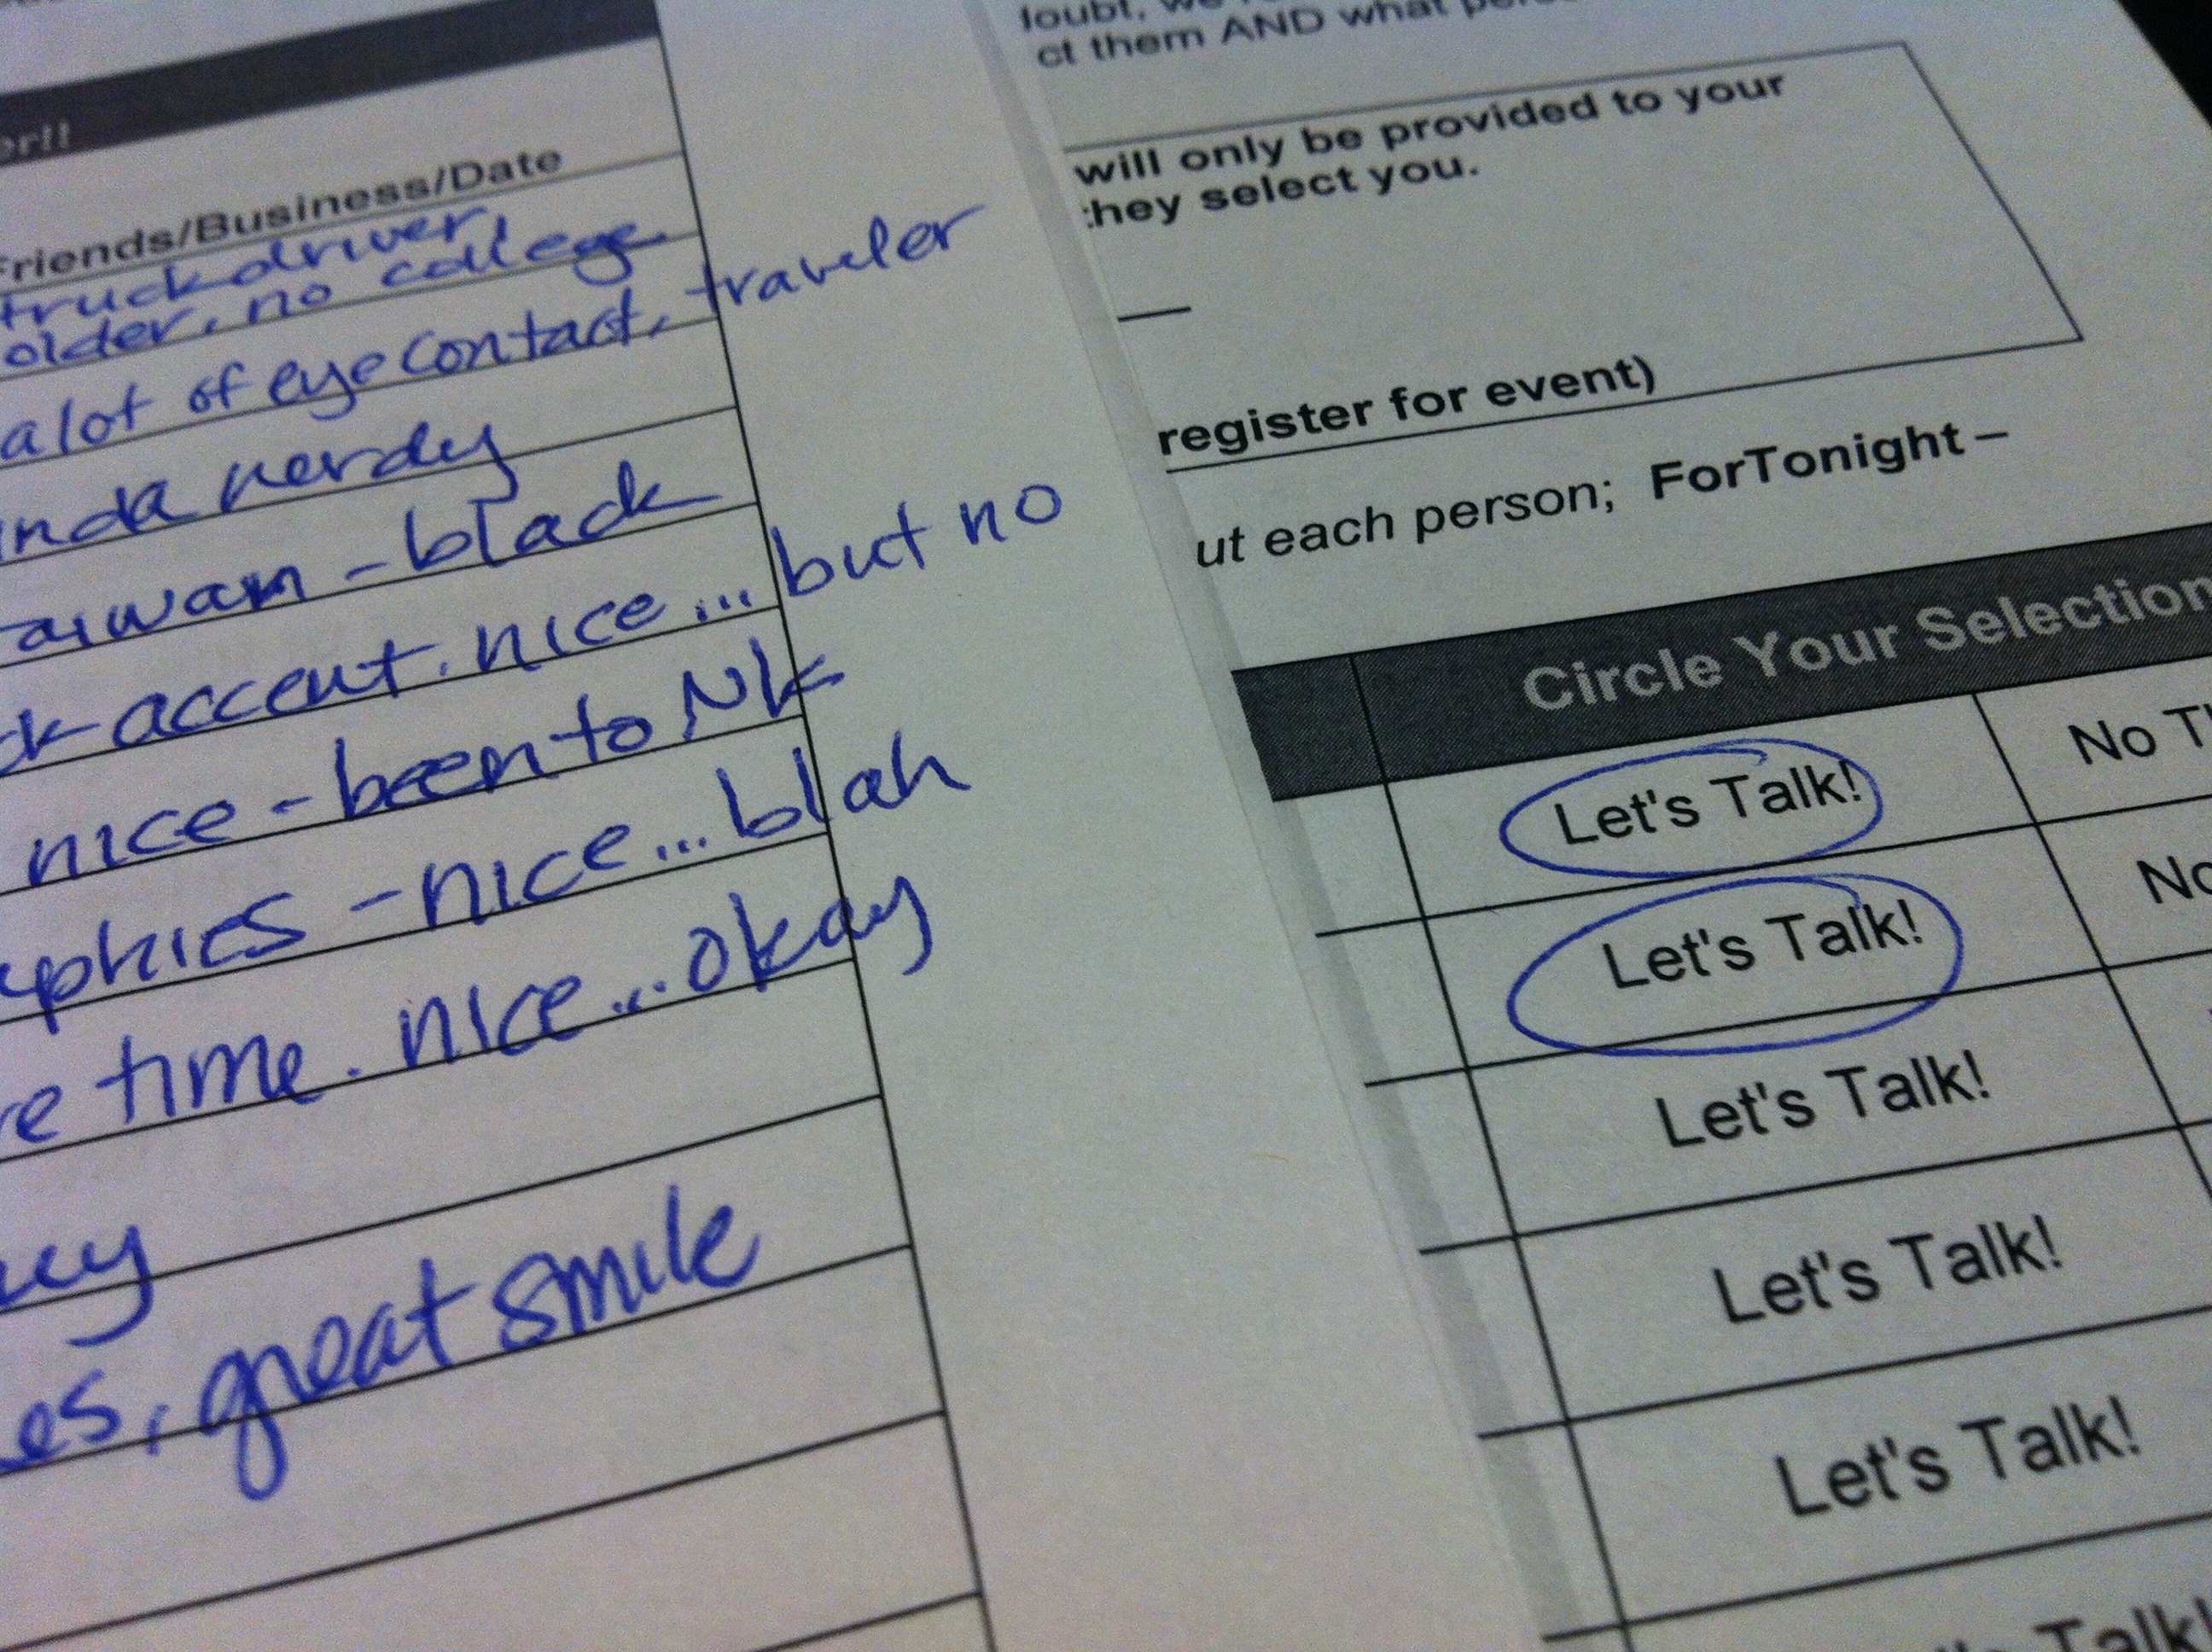 Friends/Business/Date
truck driver,
older, no college
a lot of eye contact, traveler
nerdy
- black
accent. nice... but no
nice - been to NK
- nice... blah
time. nice... okay
great smile
ct them AND what
will only be provided to your
they select you.
register for event)
each person; ForTonight –
Circle Your Selection
Let's Talk! No
Let's Talk! No
Let's Talk!
Let's Talk!
Let's Talk!
Talk!